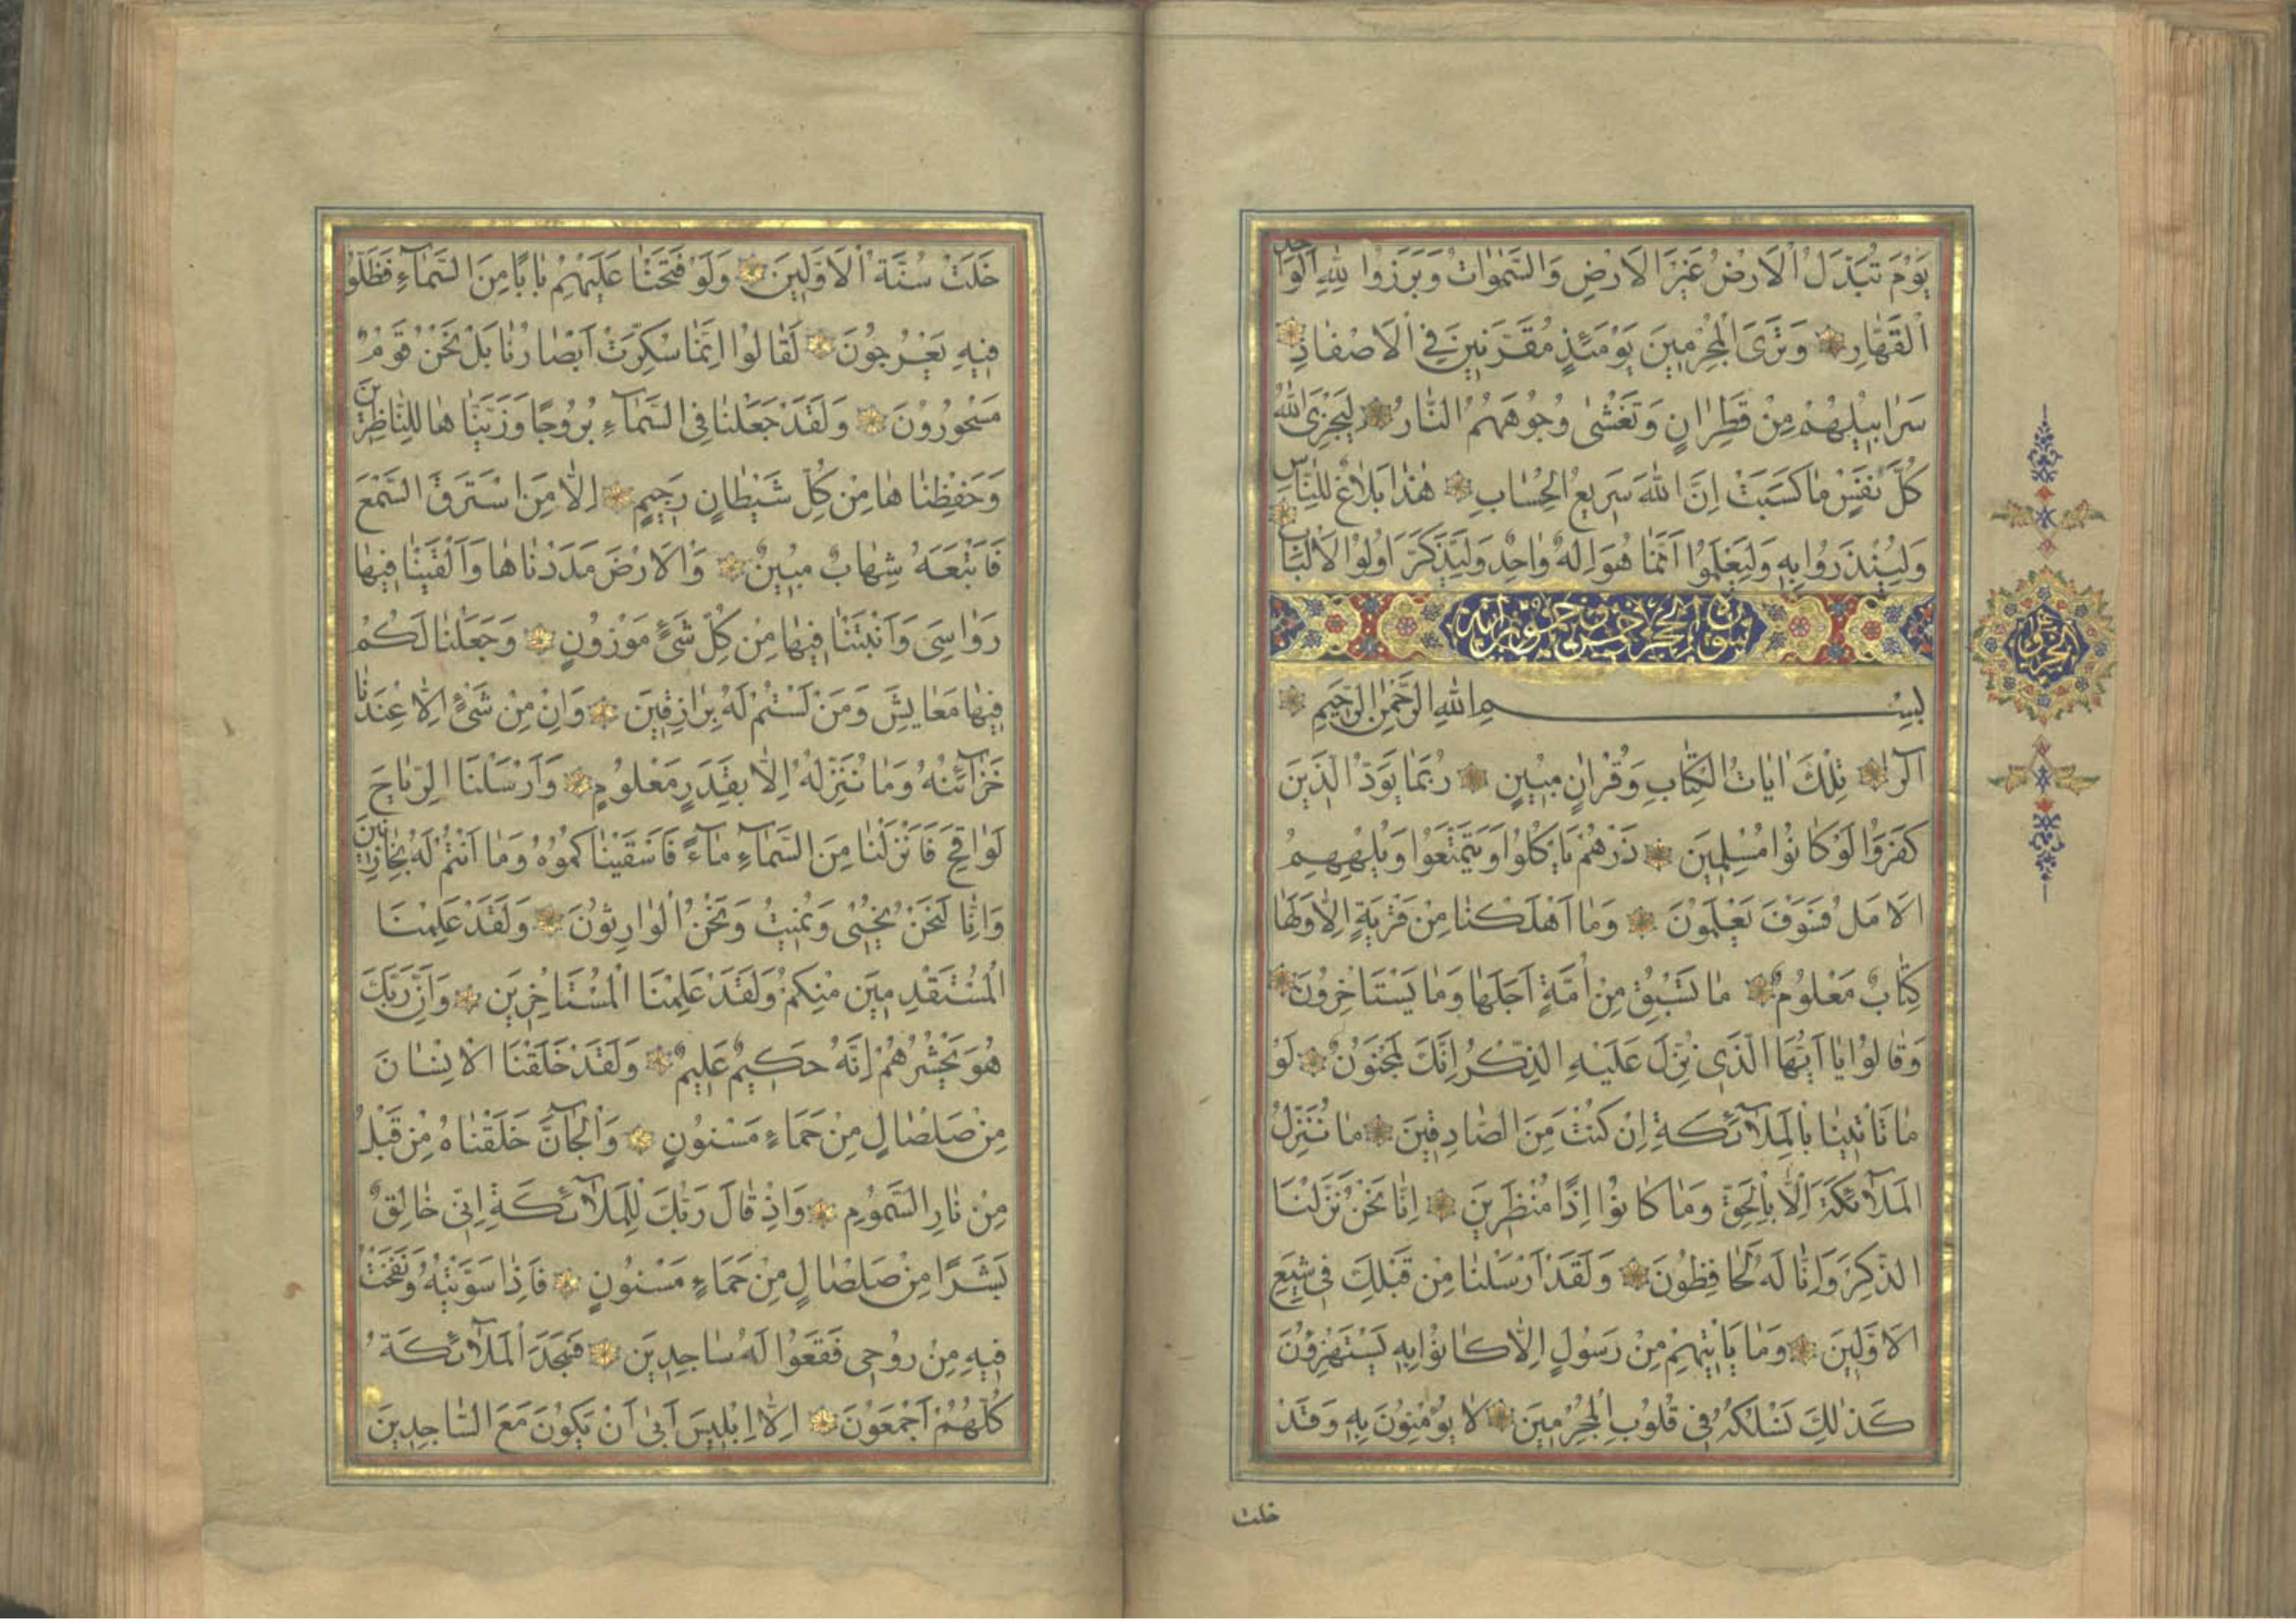 يَوْمَ تُبَدَّلُ الْاَرْضُ غَيْرَ الْاَرْضِ وَالسَّمٰوَاتُ وَبَرَزُوا لِلّٰهِ الْوَاحِدِ
الْقَهَّارِ وَتَرَى الْمُجْرِمِينَ يَوْمَئِذٍ مُقَرَّنِينَ فِي الْاَصْفَادِ
سَرَابِيلُهُمْ مِنْ قَطِرَانٍ وَتَغْشٰى وُجُوهَهُمُ النَّارُ لِيَجْزِىَ اللّٰهُ
كُلَّ نَفْسٍ مَا كَسَبَتْ اِنَّ اللّٰهَ سَرِيعُ الْحِسَابِ هٰذَا بَلَاغٌ لِلنَّاسِ
وَلِيُنْذَرُوا بِهِ وَلِيَعْلَمُوا اَنَّمَا هُوَ اِلٰهٌ وَاحِدٌ وَلِيَذَّكَّرَ اُولُوا الْاَلْبَابِ
سورة الحجر خمس وتسعون اية
بِسْمِ اللّٰهِ الرَّحْمٰنِ الرَّحِيمِ
الٓرٰ تِلْكَ اٰيَاتُ الْكِتَابِ وَقُرْاٰنٍ مُبِينٍ رُبَمَا يَوَدُّ الَّذِينَ
كَفَرُوا لَوْ كَانُوا مُسْلِمِينَ ذَرْهُمْ يَاْكُلُوا وَيَتَمَتَّعُوا وَيُلْهِهِمُ
الْاَمَلُ فَسَوْفَ يَعْلَمُونَ وَمَا اَهْلَكْنَا مِنْ قَرْيَةٍ اِلَّا وَلَهَا
كِتَابٌ مَعْلُومٌ مَا تَسْبِقُ مِنْ اُمَّةٍ اَجَلَهَا وَمَا يَسْتَاْخِرُونَ
وَقَالُوا يَا اَيُّهَا الَّذِى نُزِّلَ عَلَيْهِ الذِّكْرُ اِنَّكَ لَمَجْنُونٌ لَوْ
مَا تَاْتِينَا بِالْمَلٰٓئِكَةِ اِنْ كُنْتَ مِنَ الصَّادِقِينَ مَا نُنَزِّلُ
الْمَلٰٓئِكَةَ اِلَّا بِالْحَقِّ وَمَا كَانُوا اِذًا مُنْظَرِينَ اِنَّا نَحْنُ نَزَّلْنَا
الذِّكْرَ وَاِنَّا لَهُ لَحَافِظُونَ وَلَقَدْ اَرْسَلْنَا مِنْ قَبْلِكَ فِى شِيَعِ
الْاَوَّلِينَ وَمَا يَاْتِيهِمْ مِنْ رَسُولٍ اِلَّا كَانُوا بِهِ يَسْتَهْزِؤُنَ
كَذٰلِكَ نَسْلُكُهُ فِى قُلُوبِ الْمُجْرِمِينَ لَا يُؤْمِنُونَ بِهِ وَقَدْ
خلت
خَلَتْ سُنَّةُ الْاَوَّلِينَ وَلَوْ فَتَحْنَا عَلَيْهِمْ بَابًا مِنَ السَّمَآءِ فَظَلُّوا
فِيهِ يَعْرُجُونَ لَقَالُوا اِنَّمَا سُكِّرَتْ اَبْصَارُنَا بَلْ نَحْنُ قَوْمٌ
مَسْحُورُونَ وَلَقَدْ جَعَلْنَا فِى السَّمَآءِ بُرُوجًا وَزَيَّنَّا هَا لِلنَّاظِرِينَ
وَحَفِظْنَا هَا مِنْ كُلِّ شَيْطَانٍ رَجِيمٍ اِلَّا مَنِ اسْتَرَقَ السَّمْعَ
فَاَتْبَعَهُ شِهَابٌ مُبِينٌ وَالْاَرْضَ مَدَدْنَاهَا وَاَلْقَيْنَا فِيهَا
رَوَاسِىَ وَاَنْبَتْنَا فِيهَا مِنْ كُلِّ شَىْءٍ مَوْزُونٍ وَجَعَلْنَا لَكُمْ
فِيهَا مَعَايِشَ وَمَنْ لَسْتُمْ لَهُ بِرَازِقِينَ وَاِنْ مِنْ شَىْءٍ اِلَّا عِنْدَنَا
خَزَآئِنُهُ وَمَا نُنَزِّلُهُ اِلَّا بِقَدَرٍ مَعْلُومٍ وَاَرْسَلْنَا الرِّيَاحَ
لَوَاقِحَ فَاَنْزَلْنَا مِنَ السَّمَآءِ مَآءً فَاَسْقَيْنَاكُمُوهُ وَمَا اَنْتُمْ لَهُ بِخَازِنِينَ
وَاِنَّا لَنَحْنُ نُحْيِى وَنُمِيتُ وَنَحْنُ الْوَارِثُونَ وَلَقَدْ عَلِمْنَا
الْمُسْتَقْدِمِينَ مِنْكُمْ وَلَقَدْ عَلِمْنَا الْمُسْتَاْخِرِينَ وَاِنَّ رَبَّكَ
هُوَ يَحْشُرُهُمْ اِنَّهُ حَكِيمٌ عَلِيمٌ وَلَقَدْ خَلَقْنَا الْاِنْسَانَ
مِنْ صَلْصَالٍ مِنْ حَمَاٍ مَسْنُونٍ وَالْجَآنَّ خَلَقْنَاهُ مِنْ قَبْلُ
مِنْ نَارِ السَّمُومِ وَاِذْ قَالَ رَبُّكَ لِلْمَلٰٓئِكَةِ اِنِّى خَالِقٌ
بَشَرًا مِنْ صَلْصَالٍ مِنْ حَمَاٍ مَسْنُونٍ فَاِذَا سَوَّيْتُهُ وَنَفَخْتُ
فِيهِ مِنْ رُوحِى فَقَعُوا لَهُ سَاجِدِينَ فَسَجَدَ الْمَلٰٓئِكَةُ
كُلُّهُمْ اَجْمَعُونَ اِلَّا اِبْلِيسَ اَبٰى اَنْ يَكُونَ مَعَ السَّاجِدِينَ